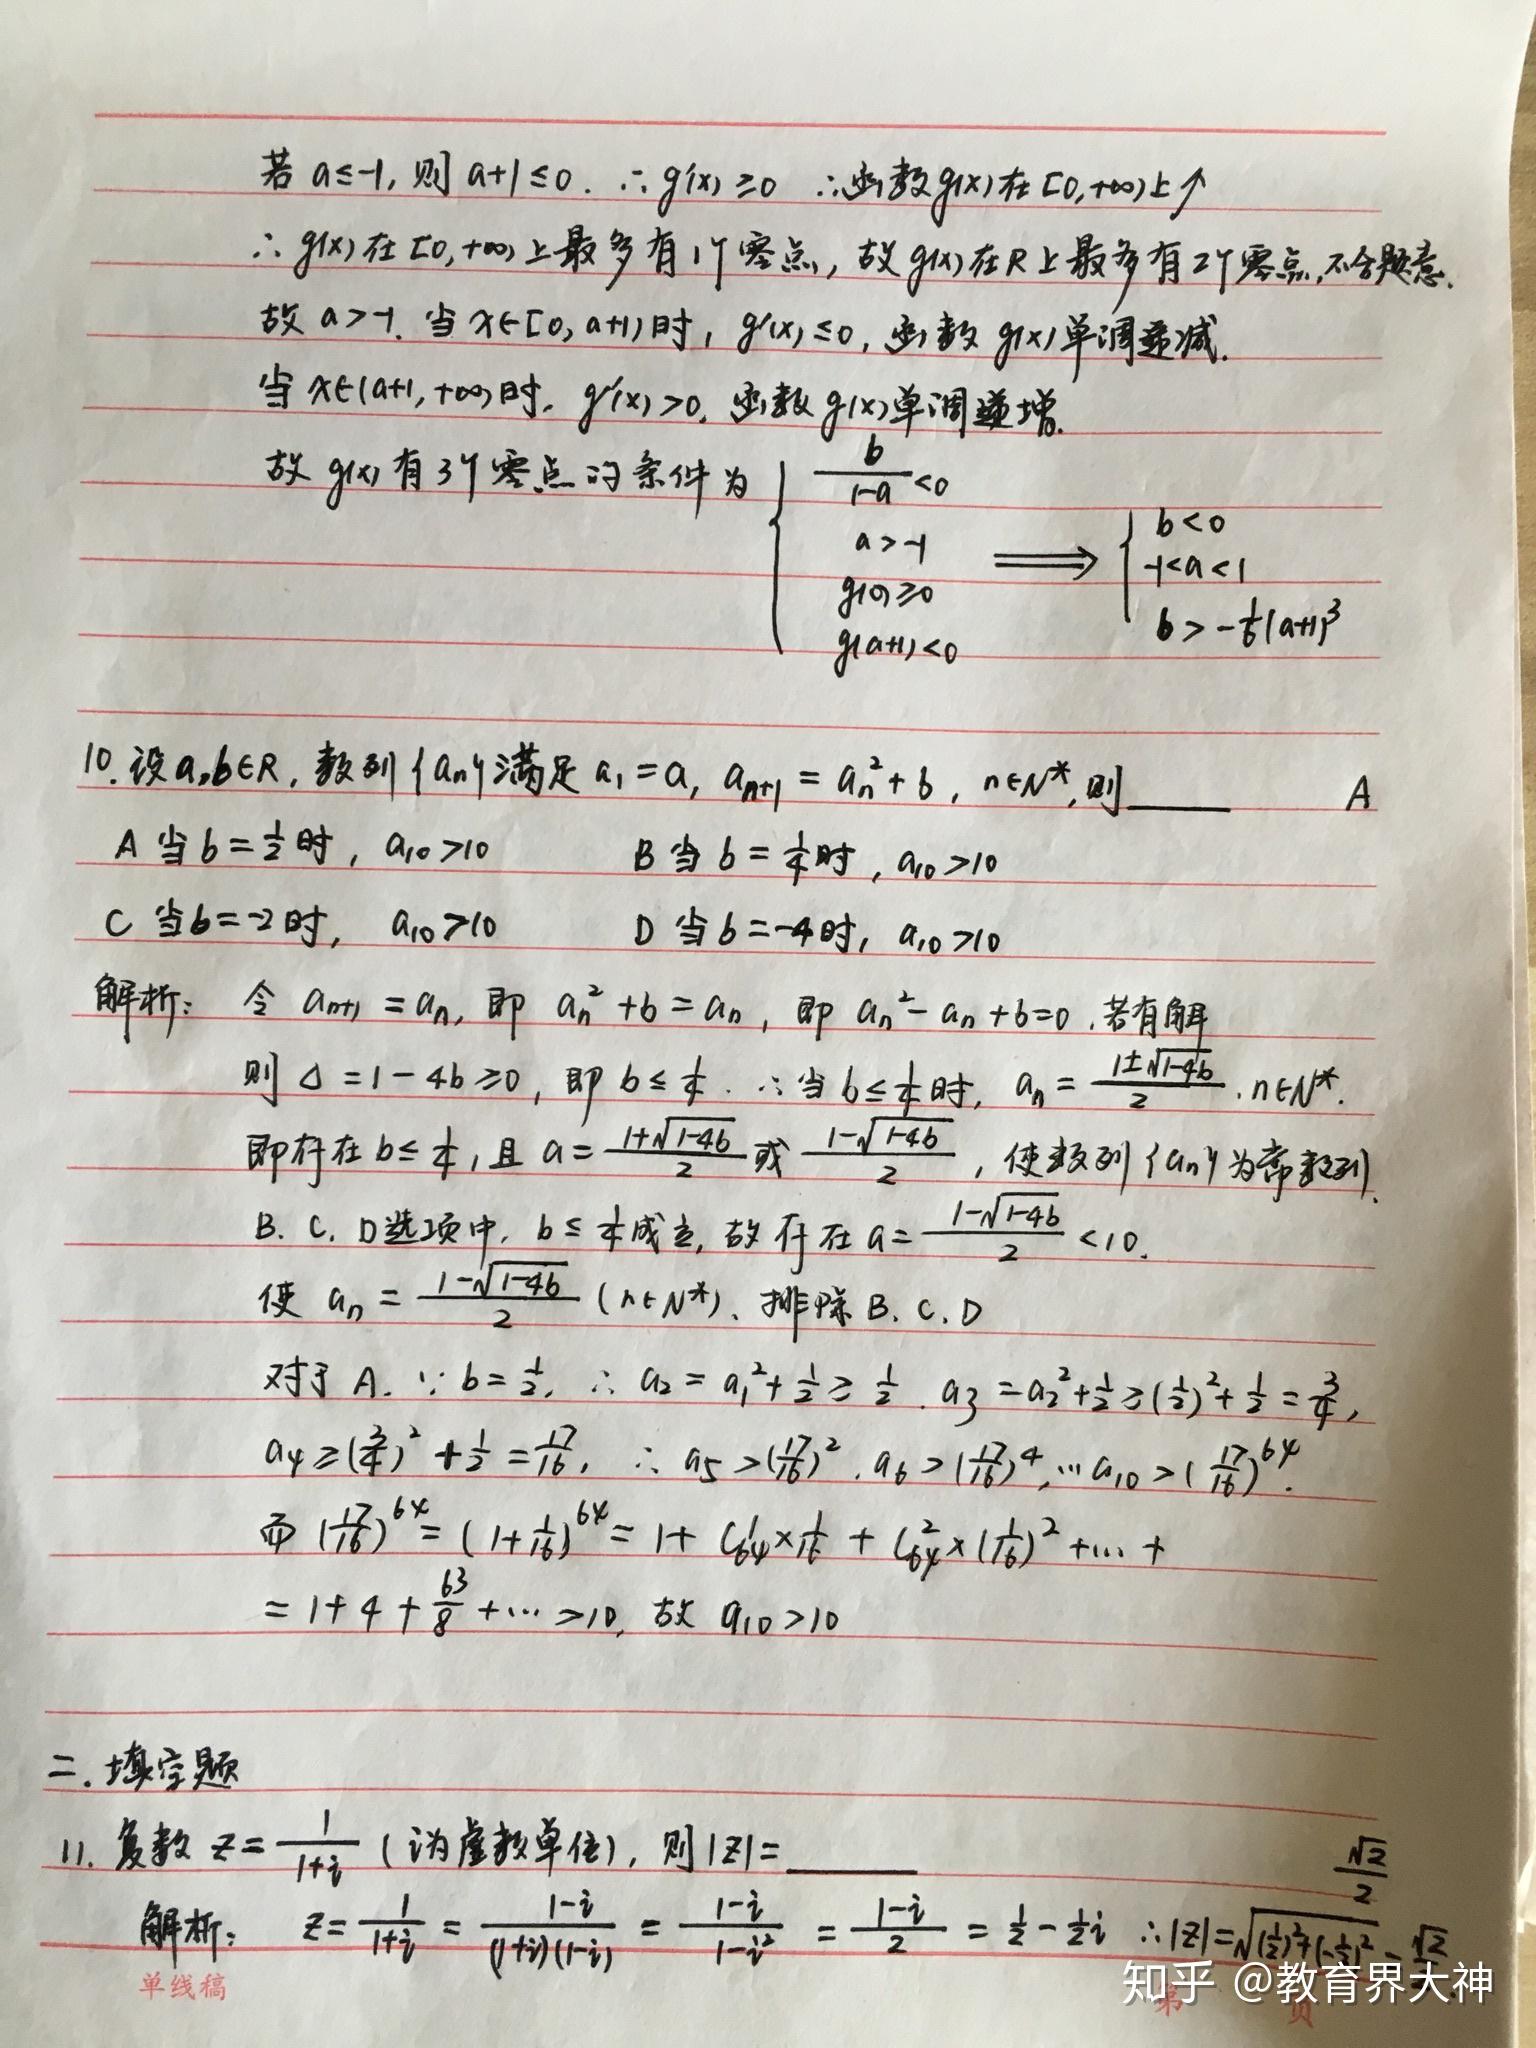 若 a≤-1, 则 a+1≤0. ∴ g'(x)≥0 ∴函数g(x)在[0,+∞)上↑
∴ g(x)在[0,+∞)上最多有1个零点, 故g(x)在R上最多有2个零点, 不合题意.
故 a>-1. 当 x∈[0, a+1)时, g'(x)≤0, 函数 g(x)单调递减.
当 x∈(a+1, +∞)时, g'(x)>0. 函数 g(x)单调递增.
故 g(x)有3个零点的条件为 { b/(1-a)<0
a>-1
g(0)≥0
g(a+1)<0
⟹ { b<0
-1<a<1
b>-1/6(a+1)³
10. 设a,b∈R, 数列{an}满足 a₁=a, aₙ₊₁=aₙ²+b, n∈N*, 则____ A
A 当 b=1/2时, a₁₀>10 B 当 b=1/4时, a₁₀>10
C 当b=-2时, a₁₀>10 D 当 b=-4时, a₁₀>10
解析: 令 aₙ₊₁=aₙ, 即 aₙ²+b=aₙ, 即 aₙ²-aₙ+b=0. 若有解
则 Δ=1-4b≥0, 即 b≤1/4. ∴当 b≤1/4时, aₙ=(1±√(1-4b))/2. n∈N*.
即存在 b≤1/4, 且 a=(1+√(1-4b))/2 或 (1-√(1-4b))/2, 使数列{an}为常数列.
B. C. D选项中, b≤1/4成立, 故存在 a=(1-√(1-4b))/2<10.
使 aₙ=(1-√(1-4b))/2 (n∈N*). 排除 B. C. D
对于 A. ∵ b=1/2, ∴ a₂=a₁²+1/2≥1/2. a₃=a₂²+1/2≥(1/2)²+1/2=3/4,
a₄≥(3/4)²+1/2=17/16, ∴ a₅>(17/16)². a₆>(17/16)⁴, … a₁₀>(17/16)⁶⁴.
而 (17/16)⁶⁴=(1+1/16)⁶⁴=1+C₆₄¹×1/16+C₆₄²×(1/16)²+…+
=1+4+63/8+…>10, 故 a₁₀>10
二. 填空题
11. 复数 z=1/(1+i) (i为虚数单位), 则|z|=____ √2/2
解析: z=1/(1+i)=(1-i)/((1+i)(1-i))=(1-i)/(1-i²)=(1-i)/2=1/2-1/2i ∴|z|=√((1/2)²+(-1/2)²)=√2/2.
单线稿
第 页
知乎 @教育界大神